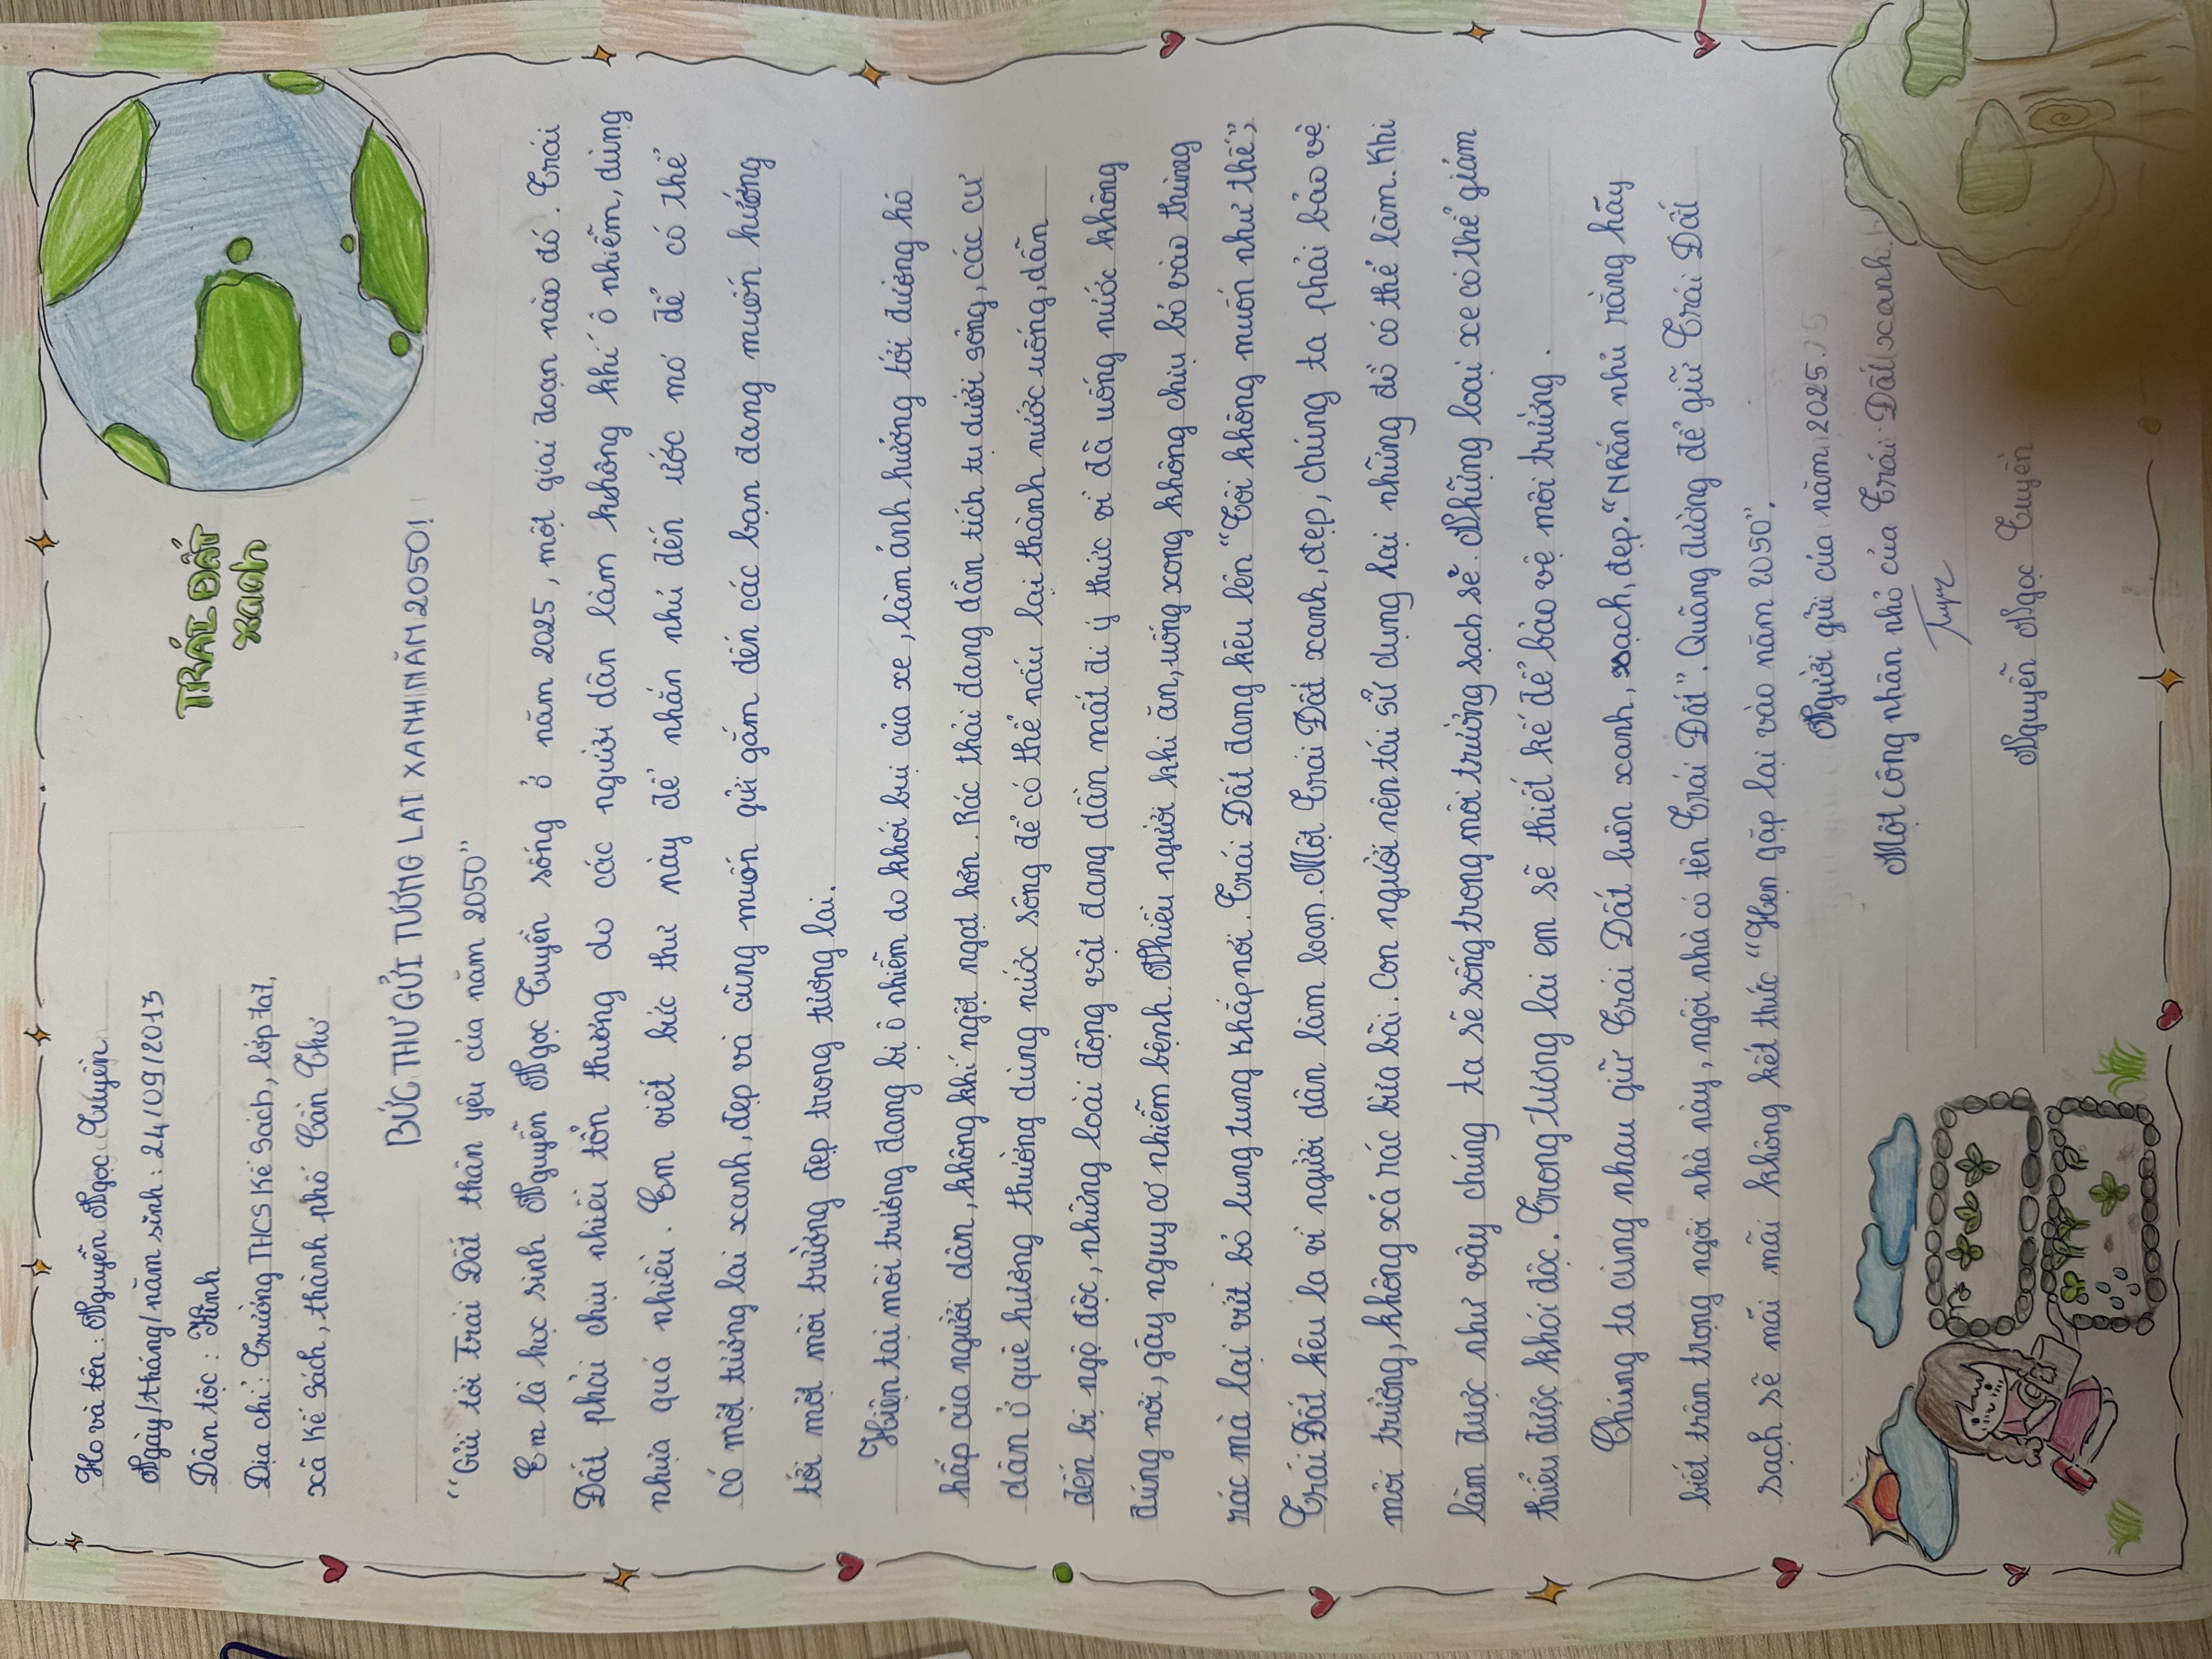 Họ và tên: Nguyễn Ngọc Tuyền
Ngày/tháng/năm sinh: 24/09/2013
Dân tộc: Kinh
Địa chỉ: Trường THCS Kế Sách, lớp 7a7,
xã Kế Sách, thành phố Cần Thơ
TRÁI ĐẤT
xanh
BỨC THƯ GỬI TƯƠNG LAI XANH NĂM 2050!
"Gửi tới Trái Đất thân yêu của năm 2050"
Em là học sinh Nguyễn Ngọc Tuyền sống ở năm 2025, một giai đoạn nào đó. Trái
Đất phải chịu nhiều tổn thương do các người dân làm không khí ô nhiễm, dùng
nhựa quá nhiều. Em viết bức thư này để nhắn nhủ đến ước mơ để có thể
có một tương lai xanh, đẹp và cũng muốn gửi gắm đến các bạn đang muốn hướng
tới một môi trường đẹp trong tương lai.
Hiện tại môi trường đang bị ô nhiễm do khói bụi của xe, làm ảnh hưởng tới đường hô
hấp của người dân, không khí ngột ngạt hơn. Rác thải đang dần tích tụ dưới sông, các cư
dân ở quê hương thường dùng nước sông để có thể nấu lại thành nước uống, dẫn
đến bị ngộ độc, những loài động vật đang dần mất đi ý thức vì đã uống nước không
đúng nơi, gây nguy cơ nhiễm bệnh. Nhiều người khi ăn, uống xong không chịu bỏ vào thùng
rác mà lại vứt bỏ lung tung khắp nơi. Trái Đất đang kêu lên "Tôi không muốn như thế",
Trái Đất kêu la vì người dân làm loạn. Một Trái Đất xanh, đẹp, chúng ta phải bảo vệ
môi trường, không xả rác bừa bãi. Con người nên tái sử dụng lại những đồ có thể làm. Khi
làm được như vậy chúng ta sẽ sống trong môi trường sạch sẽ. Những loại xe có thể giảm
thiểu được khói độc. Trong tương lai em sẽ thiết kế để bảo vệ môi trường.
Chúng ta cùng nhau giữ Trái Đất luôn xanh, sạch, đẹp. "Nhắn nhủ rằng hãy
biết trân trọng ngôi nhà này, ngôi nhà có tên Trái Đất". Quãng đường để giữ Trái Đất
sạch sẽ mãi mãi không kết thức "Hẹn gặp lại vào năm 2050".
Người gửi của năm 2025.
Một công nhân nhỏ của Trái Đất xanh.
Nguyễn Ngọc Tuyền